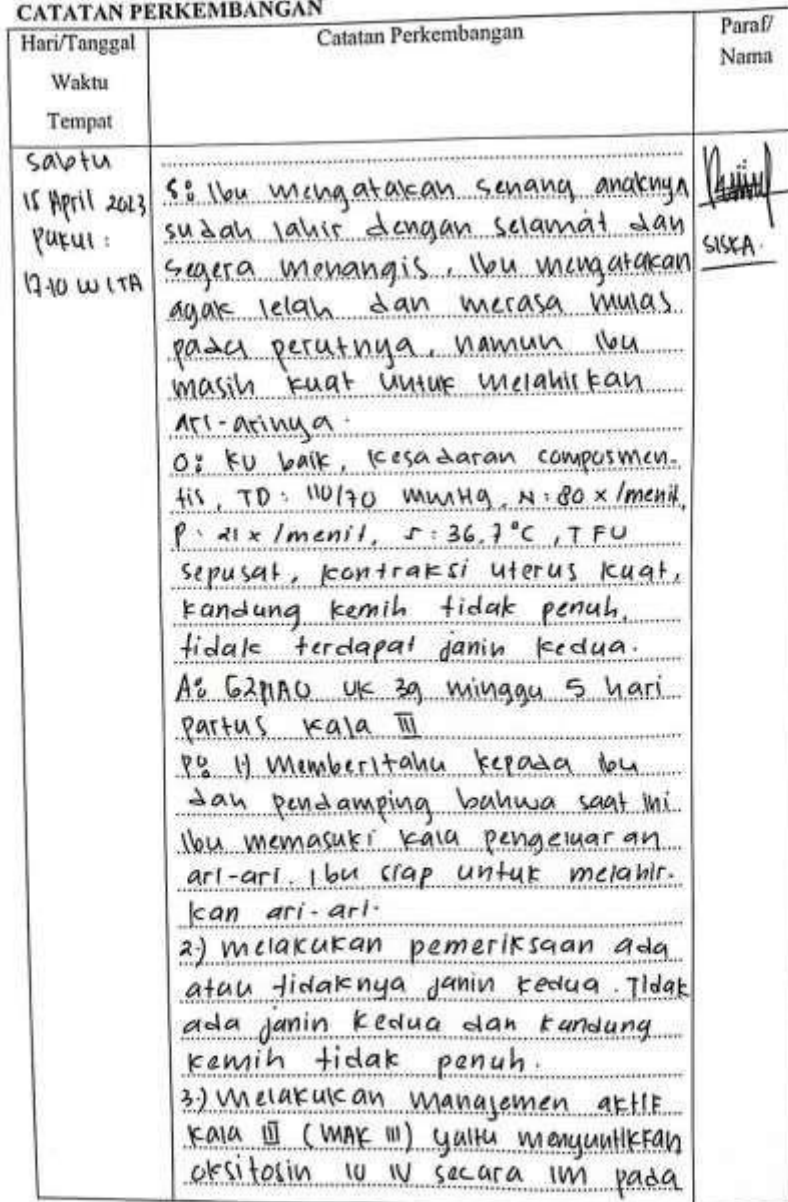 CATATAN PERKEMBANGAN
Hari/Tanggal
Waktu
Tempat
Catatan Perkembangan
Paraf/
Nama
Sabtu
15 April 2023
Pukul :
17.10 WITA
S: Ibu mengatakan senang anaknya
sudah lahir dengan selamat dan
segera menangis, Ibu mengatakan
agak lelah dan merasa mulas
pada perutnya, namun ibu
masih kuat untuk melahirkan
Ari-arinya.
O: KU baik, kesadaran composmen-
tis, TD : 110/70 mmHg, N : 80 x /menit,
P : 21 x /menit, S : 36,7°C, TFU
sepusat, kontraksi uterus kuat,
kandung kemih tidak penuh,
tidak terdapat janin kedua.
A: G2P1A0 UK 39 minggu 5 hari
Partus Kala III
P: 1) Memberitahu kepada ibu
dan pendamping bahwa saat ini
Ibu memasuki kala pengeluaran
ari-ari. Ibu siap untuk melahir-
kan ari-ari.
2.) melakukan pemeriksaan ada
atau tidaknya janin kedua. Tidak
ada janin kedua dan kandung
kemih tidak penuh.
3.) Melakukan manajemen aktif
kala III (MAK III) yaitu menyuntikkan
oksitosin 10 IU secara IM pada
SISKA.